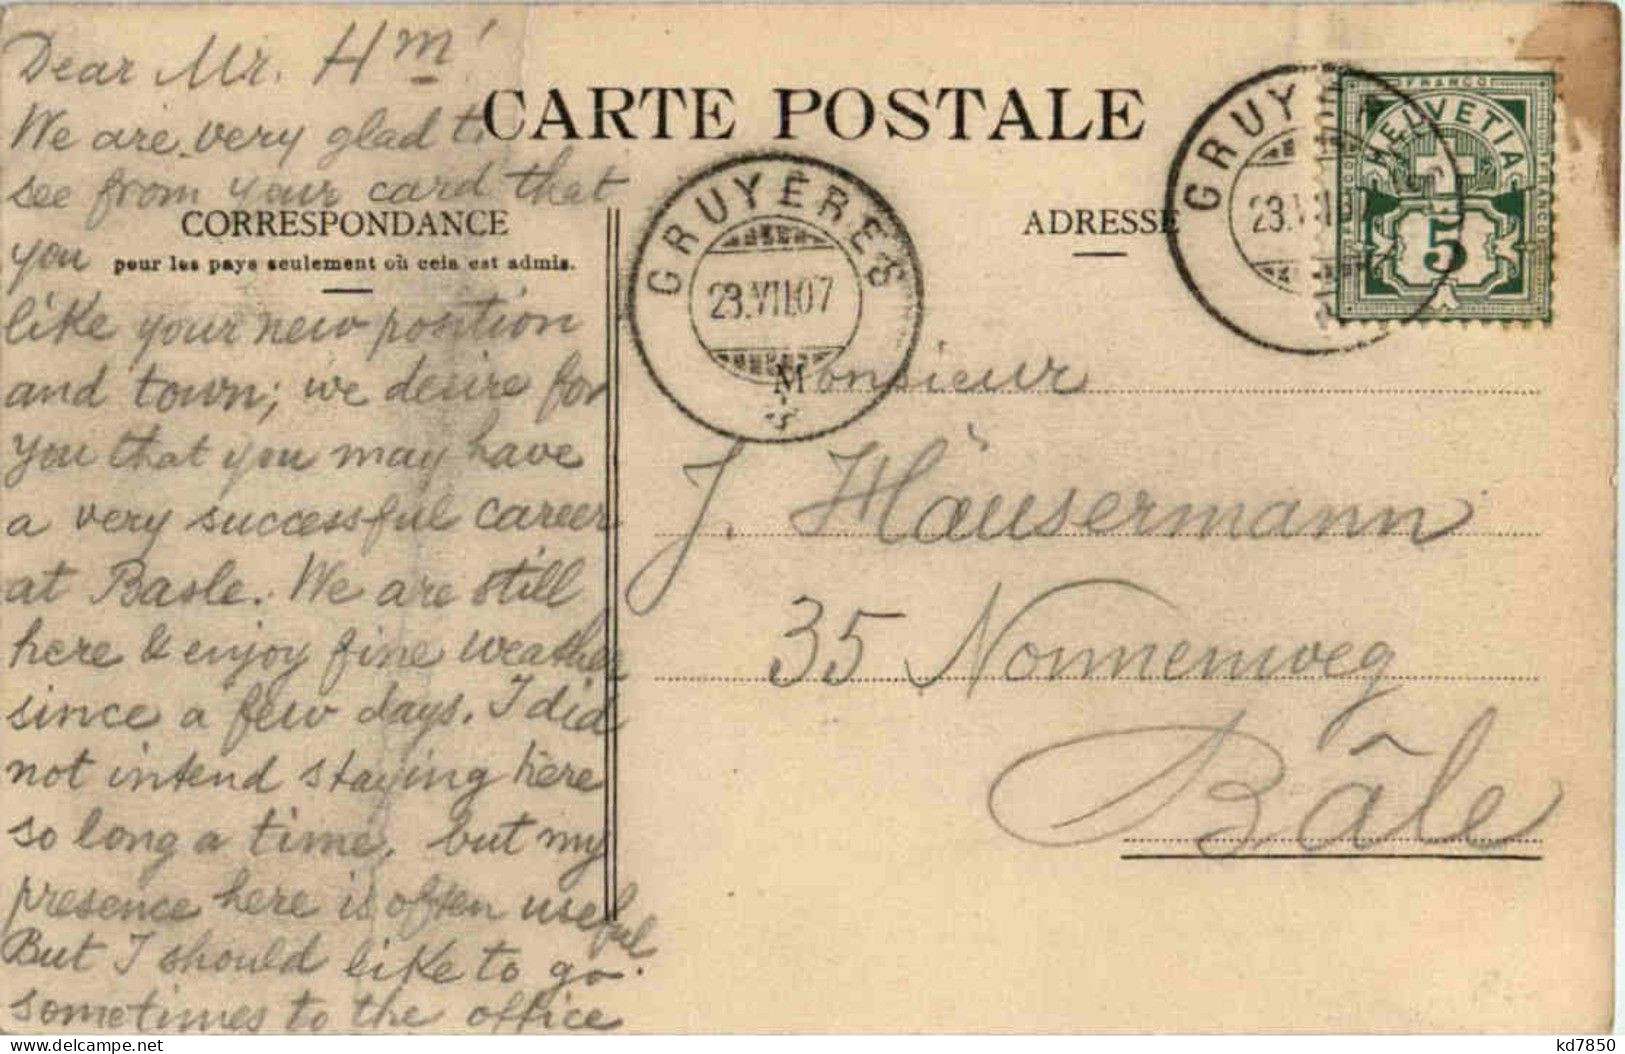 Dear Mr. Hm!
We are very glad to
see from your card that
you
like your new position
and town; we desire for
you that you may have
a very successful career
at Basle. We are still
here & enjoy fine weather
since a few days. I did
not intend staying here
so long a time, but my
presence here is often useful.
But I should like to go
sometimes to the office
CARTE POSTALE
CORRESPONDANCE
pour les pays seulement où cela est admis.
ADRESSE
GRUYÈRES
23.VII.07
GRUY
23.V
FRANCO
HELVETIA
FRANCO
5
Monsieur
J. Häusermann
35 Nonnenweg
Bâle
kd7850